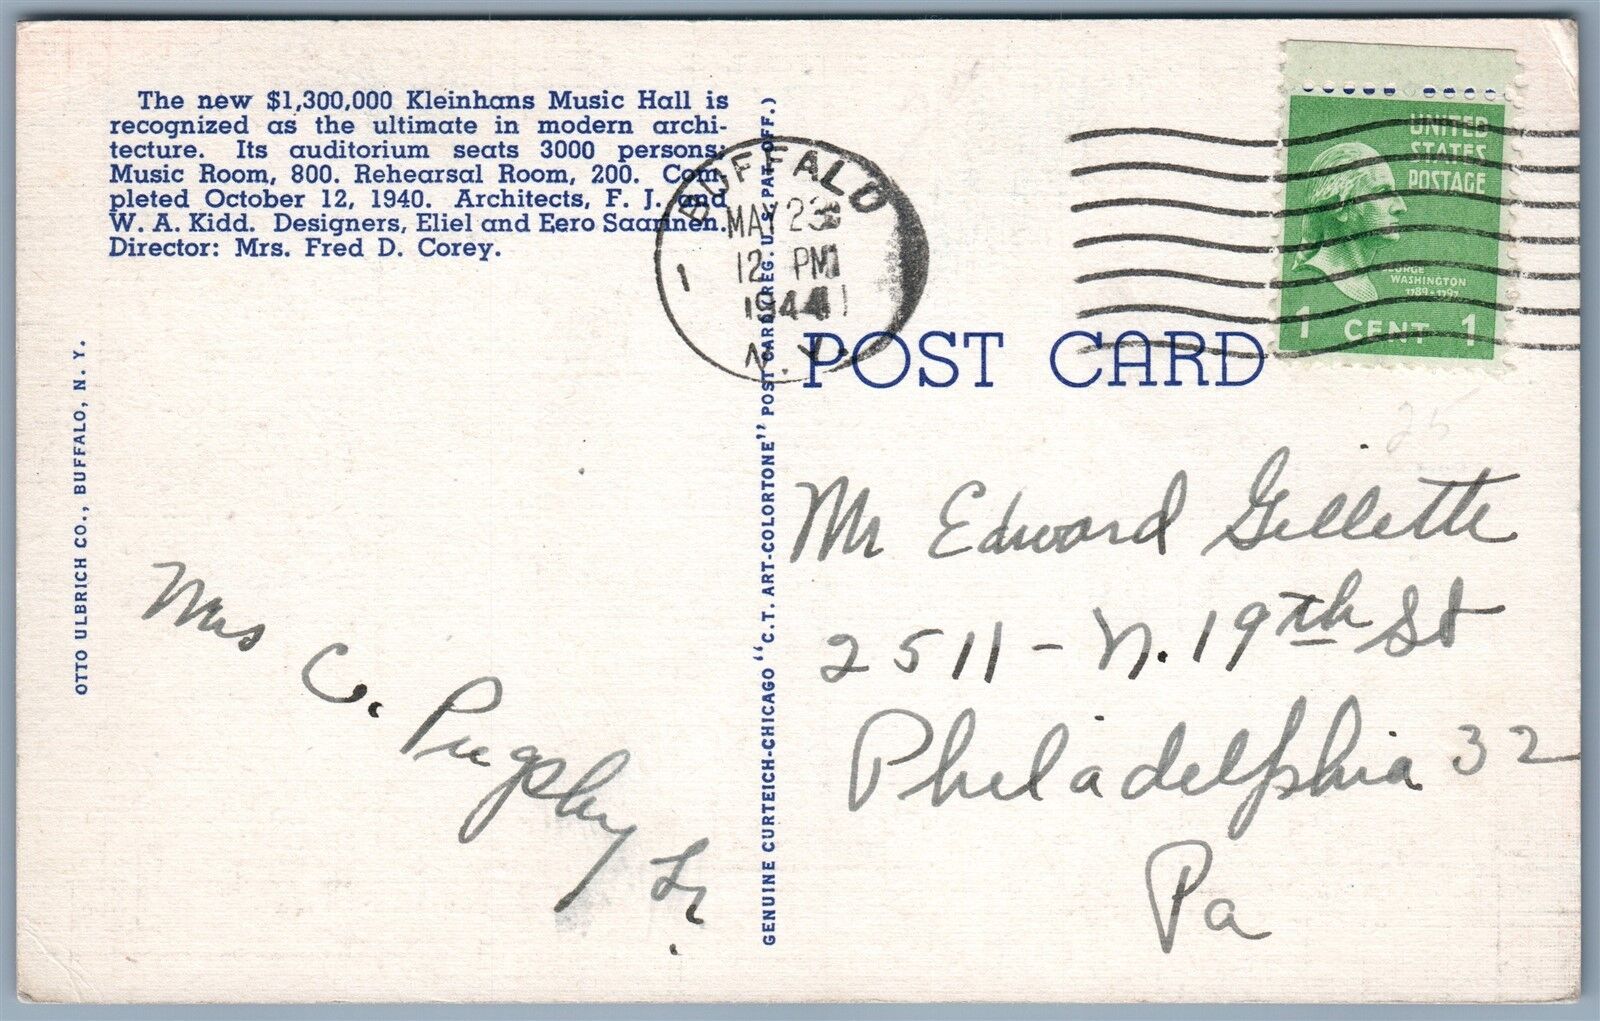 The new $1,300,000 Kleinhans Music Hall is
recognized as the ultimate in modern archi-
tecture. Its auditorium seats 3000 persons;
Music Room, 800. Rehearsal Room, 200. Com-
pleted October 12, 1940. Architects, F. J. and
W. A. Kidd. Designers, Eliel and Eero Saarinen.
Director: Mrs. Fred D. Corey.
OTTO ULBRICH CO., BUFFALO, N. Y.
Mrs C. Pugsley Sr.
GENUINE CURTEICH-CHICAGO "C.T. ART-COLORTONE" POST CARD (REG. U.S. PAT. OFF.)
BUFFALO
MAY 23
12 PM
1944
N.Y.
1
UNITED
STATES
POSTAGE
GEORGE
WASHINGTON
1789-1797
1 CENT 1
POST CARD
25
Mr Edward Gillette
2511 - N. 19th St
Philadelphia 32
Pa